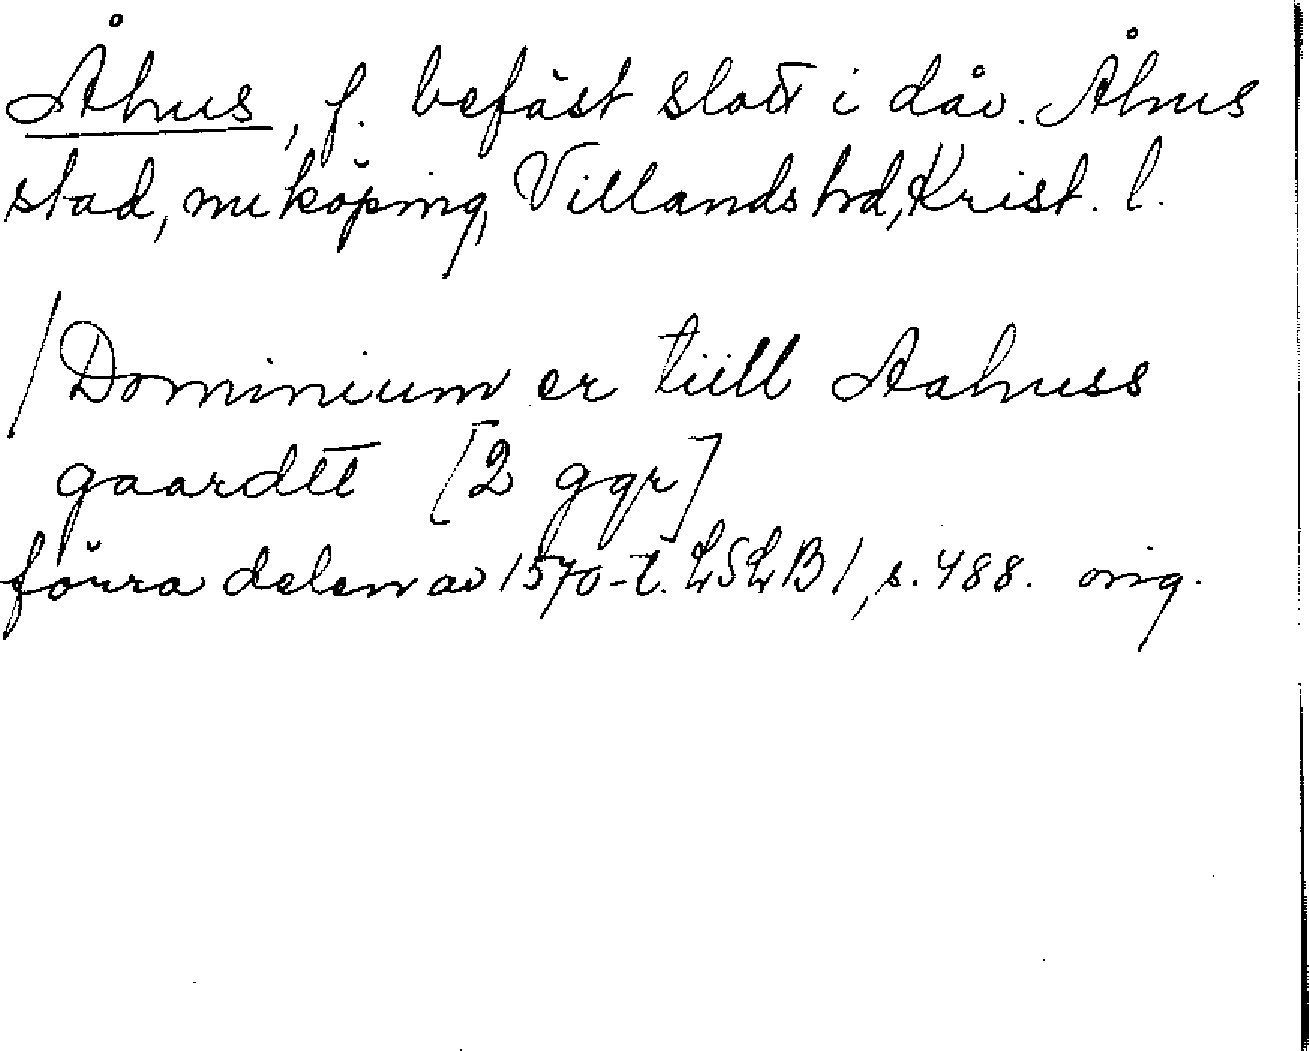 Åhus, f. befäst slott i dåv. Åhus
stad, nu köping, Villands hd, Krist. l.
/Dominium er tiill Aahuss
gaardtt [2 ggr]
förra delen av 1570-t. LSLB 1, s. 488. orig.